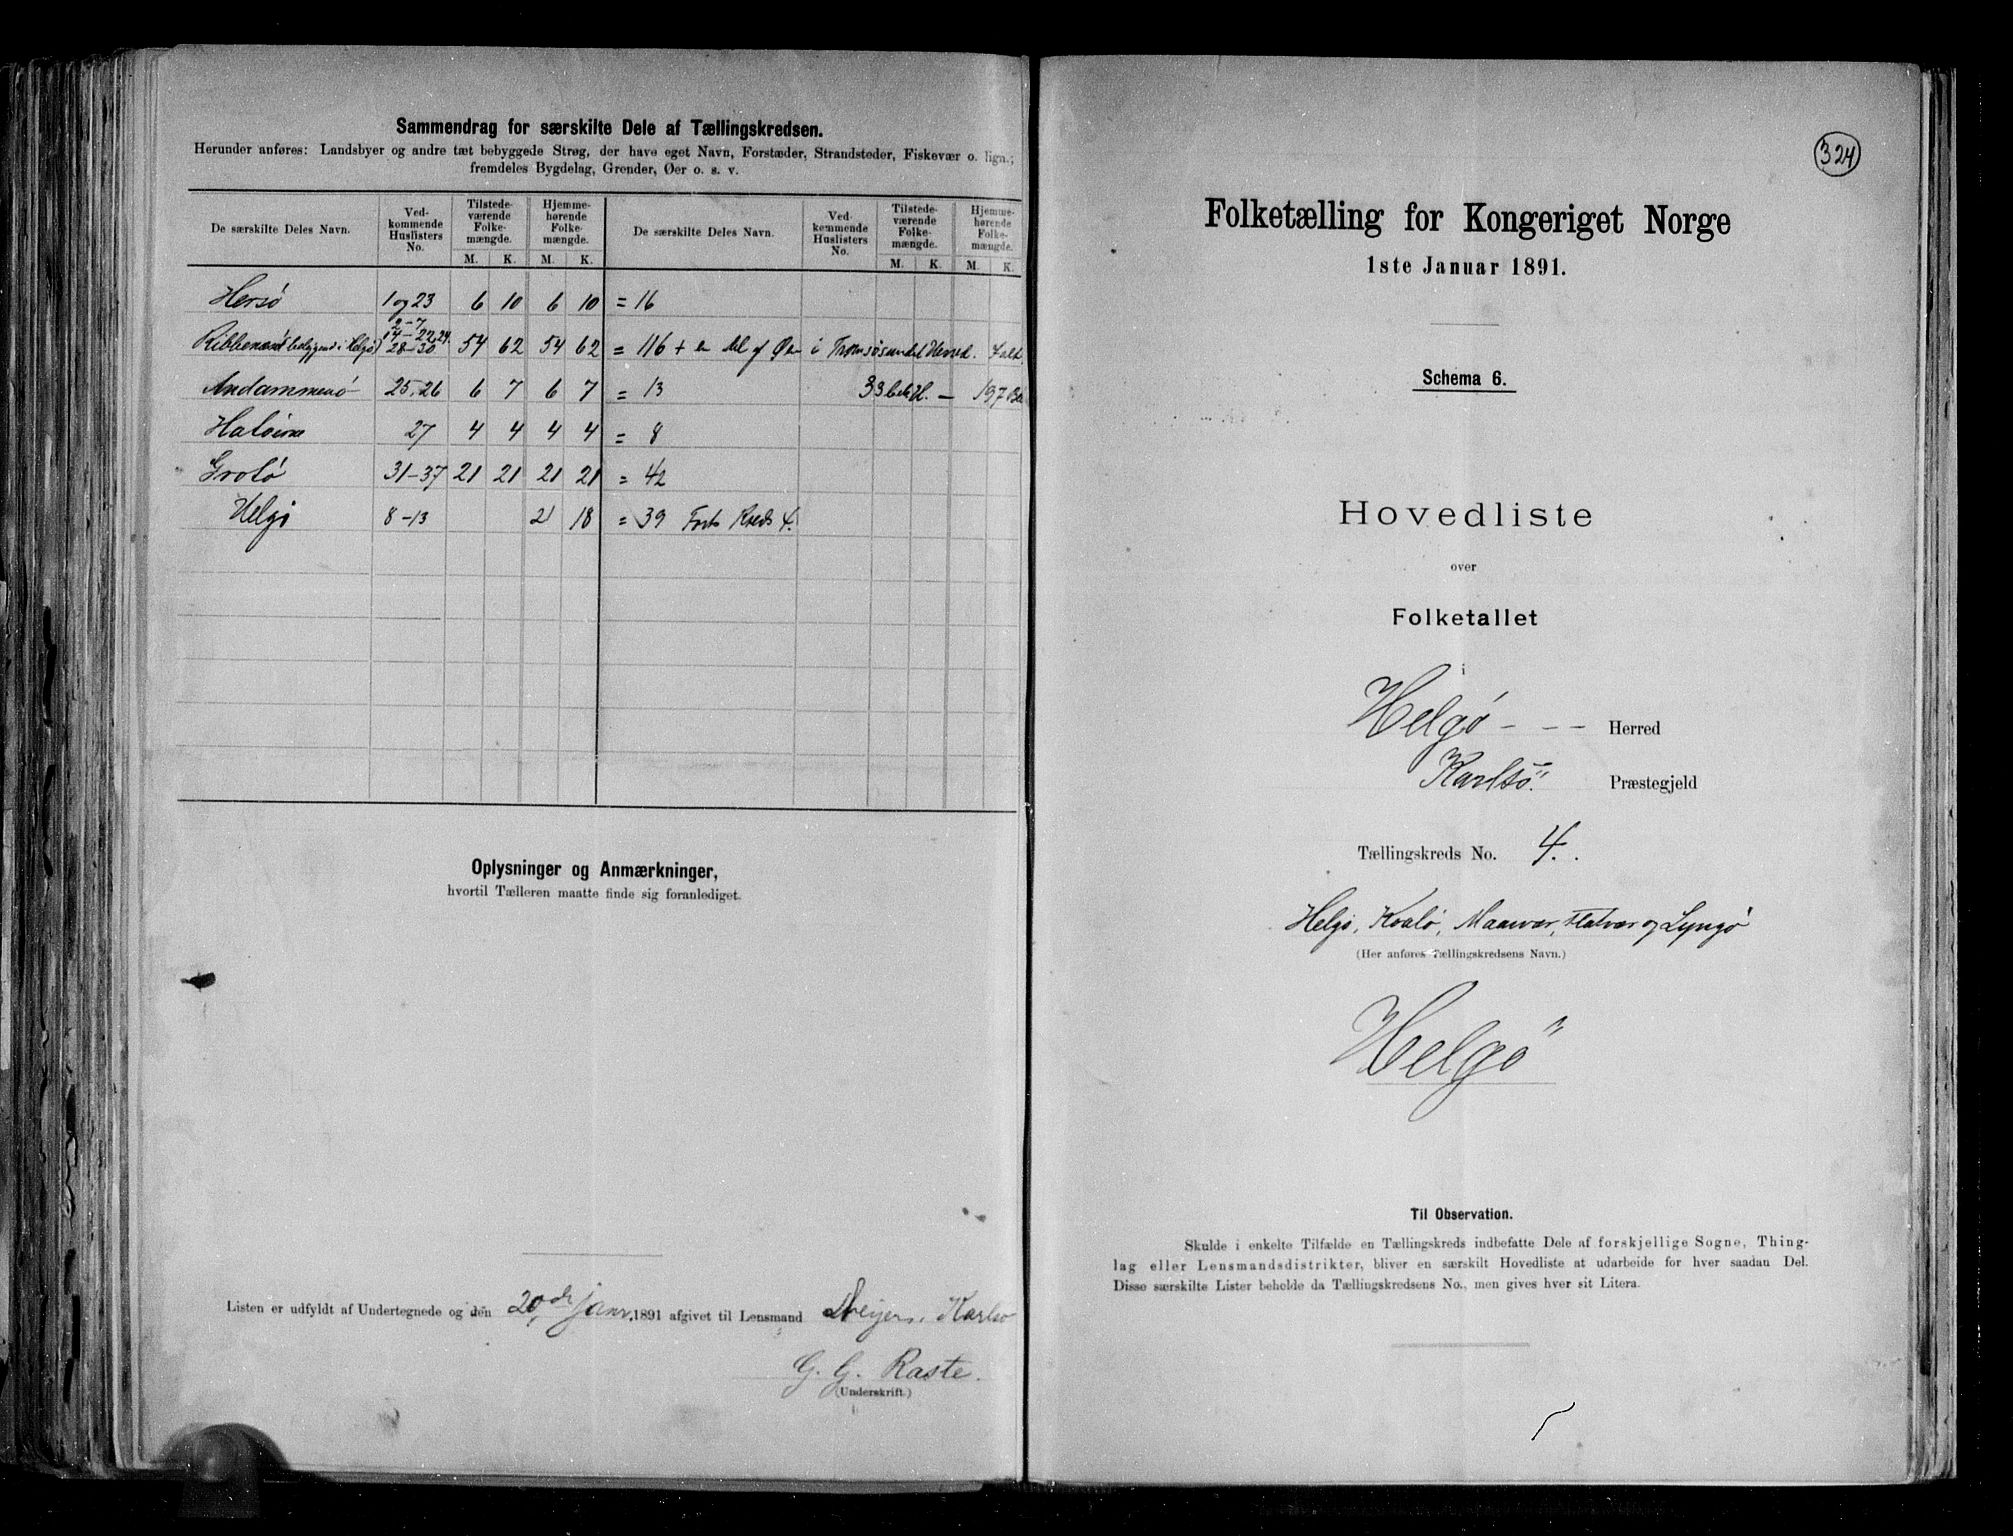 Sammendrag for særskilte Dele af Tællingskredsen.
Herunder anføres: Landsbyer og andre tæt bebyggede Strøg, der have eget Navn, Forstæder, Strandsteder, Fiskevær o. lign.;
fremdeles Bygdelag, Grender, Øer o. s. v.
De særskilte Deles Navn. Vedkommende Huslisters No. Tilstedeværende Folkemængde. M. K. Hjemmehørende Folkemængde. M. K. De særskilte Deles Navn. Vedkommende Huslisters No. Tilstedeværende Folkemængde. M. K. Hjemmehørende Folkemængde. M. K.
Hersø 1 og 23 6 10 6 10 = 16
2-7
14-22,24
Ribbenesø 28-30 54 62 54 62 = 116 + en del af Øen i Tromsøsundet Herred.
Andammenø 25,26 6 7 6 7 = 13 33 beb H. — 197
27 4 4 4 4 = 8
Grotø 31-37 21 21 21 21 = 42
Helgø 8-13 21 18 = 39 Forts Kreds 4.
Oplysninger og Anmærkninger,
hvortil Tælleren maatte finde sig foranlediget.
Listen er udfyldt af Undertegnede og den 20de janr. 1891 afgivet til Lensmand Dreijer, Karlsø
G. G. Raste.
(Underskrift.)
324
Folketælling for Kongeriget Norge
1ste Januar 1891.
Schema 6.
Hovedliste
over
Folketallet
i
Helgø - - - Herred
Karlsø. Præstegjeld
Tællingskreds No. 4.
Helgø, Kvalø, Maasvær, Flatvær og Lyngø
(Her anføres Tællingskredsens Navn.)
Helgø
Til Observation.
Skulde i enkelte Tilfælde en Tællingskreds indbefatte Dele af forskjellige Sogne, Thing-
lag eller Lensmandsdistrikter, bliver en særskilt Hovedliste at udarbeide for hver saadan Del.
Disse særskilte Lister beholde da Tællingskredsens No., men gives hver sit Litera.